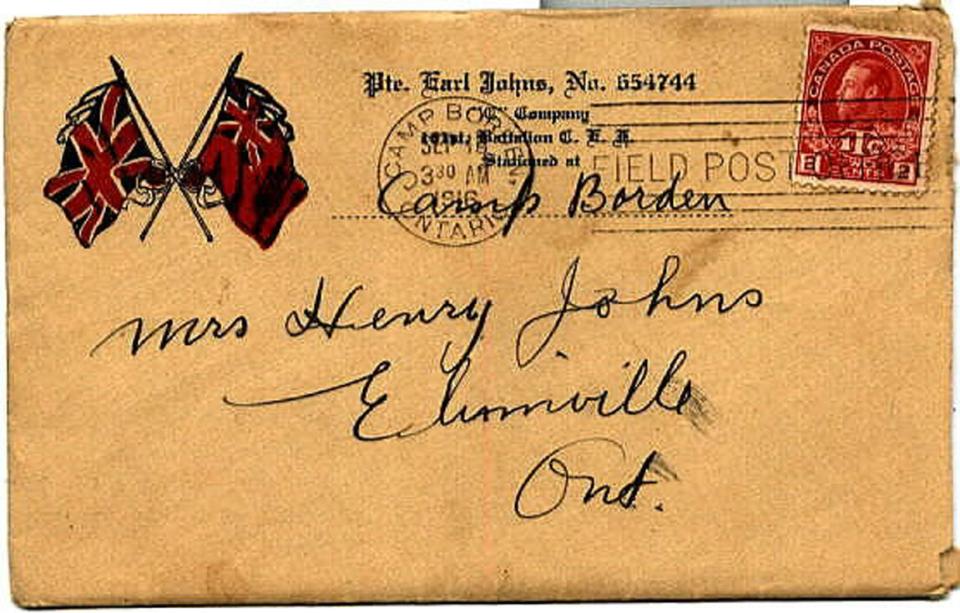 Pte. Earl Johns, No. 654744
"C" Company
161st. Battalion C. E. F.
Stationed at
Camp Borden
CAMP BORDEN
SEP
3 30 AM
1916
ONTARIO
FIELD POST
CANADA POSTAGE
1Tc
2 CENTS 2
Mrs Henry Johns
Elimville
Ont.